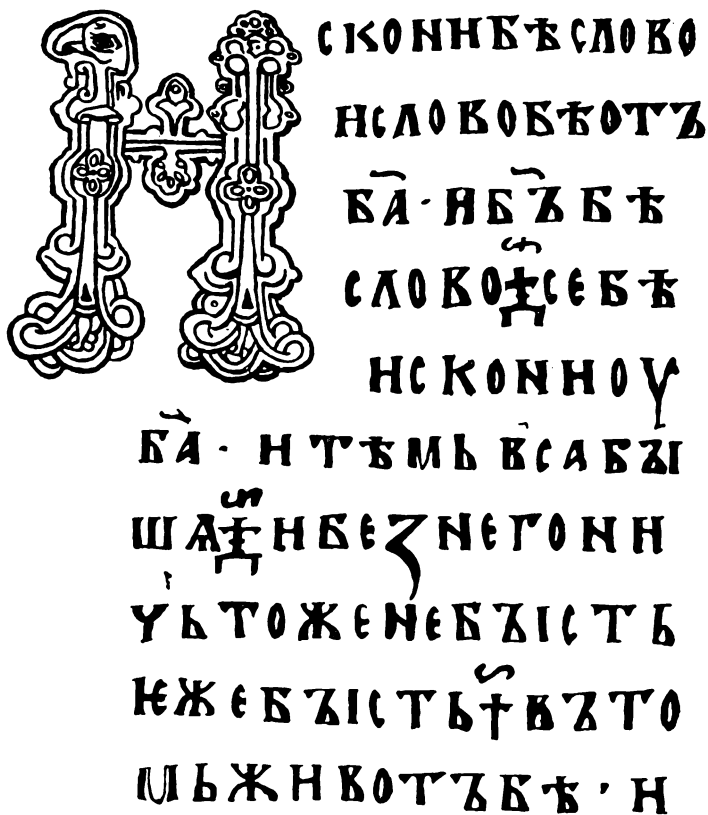 ИСКОНИБѢСЛОВО
ИСЛОВОБѢОТЪ
Б҃А · И Б҃Ъ БѢ
СЛОВО СЕБѢ
ИСКОНИОУ
Б҃А · И ТѢМЬ В҆САБЪІ
ШѦ ИБЕЗНЕГОНИ
ЧЬТОЖЕНЕБЪІСТЬ
ѤЖЕБЪІСТЬ ВЪТО
МЬЖИВОТЪБѢ · И